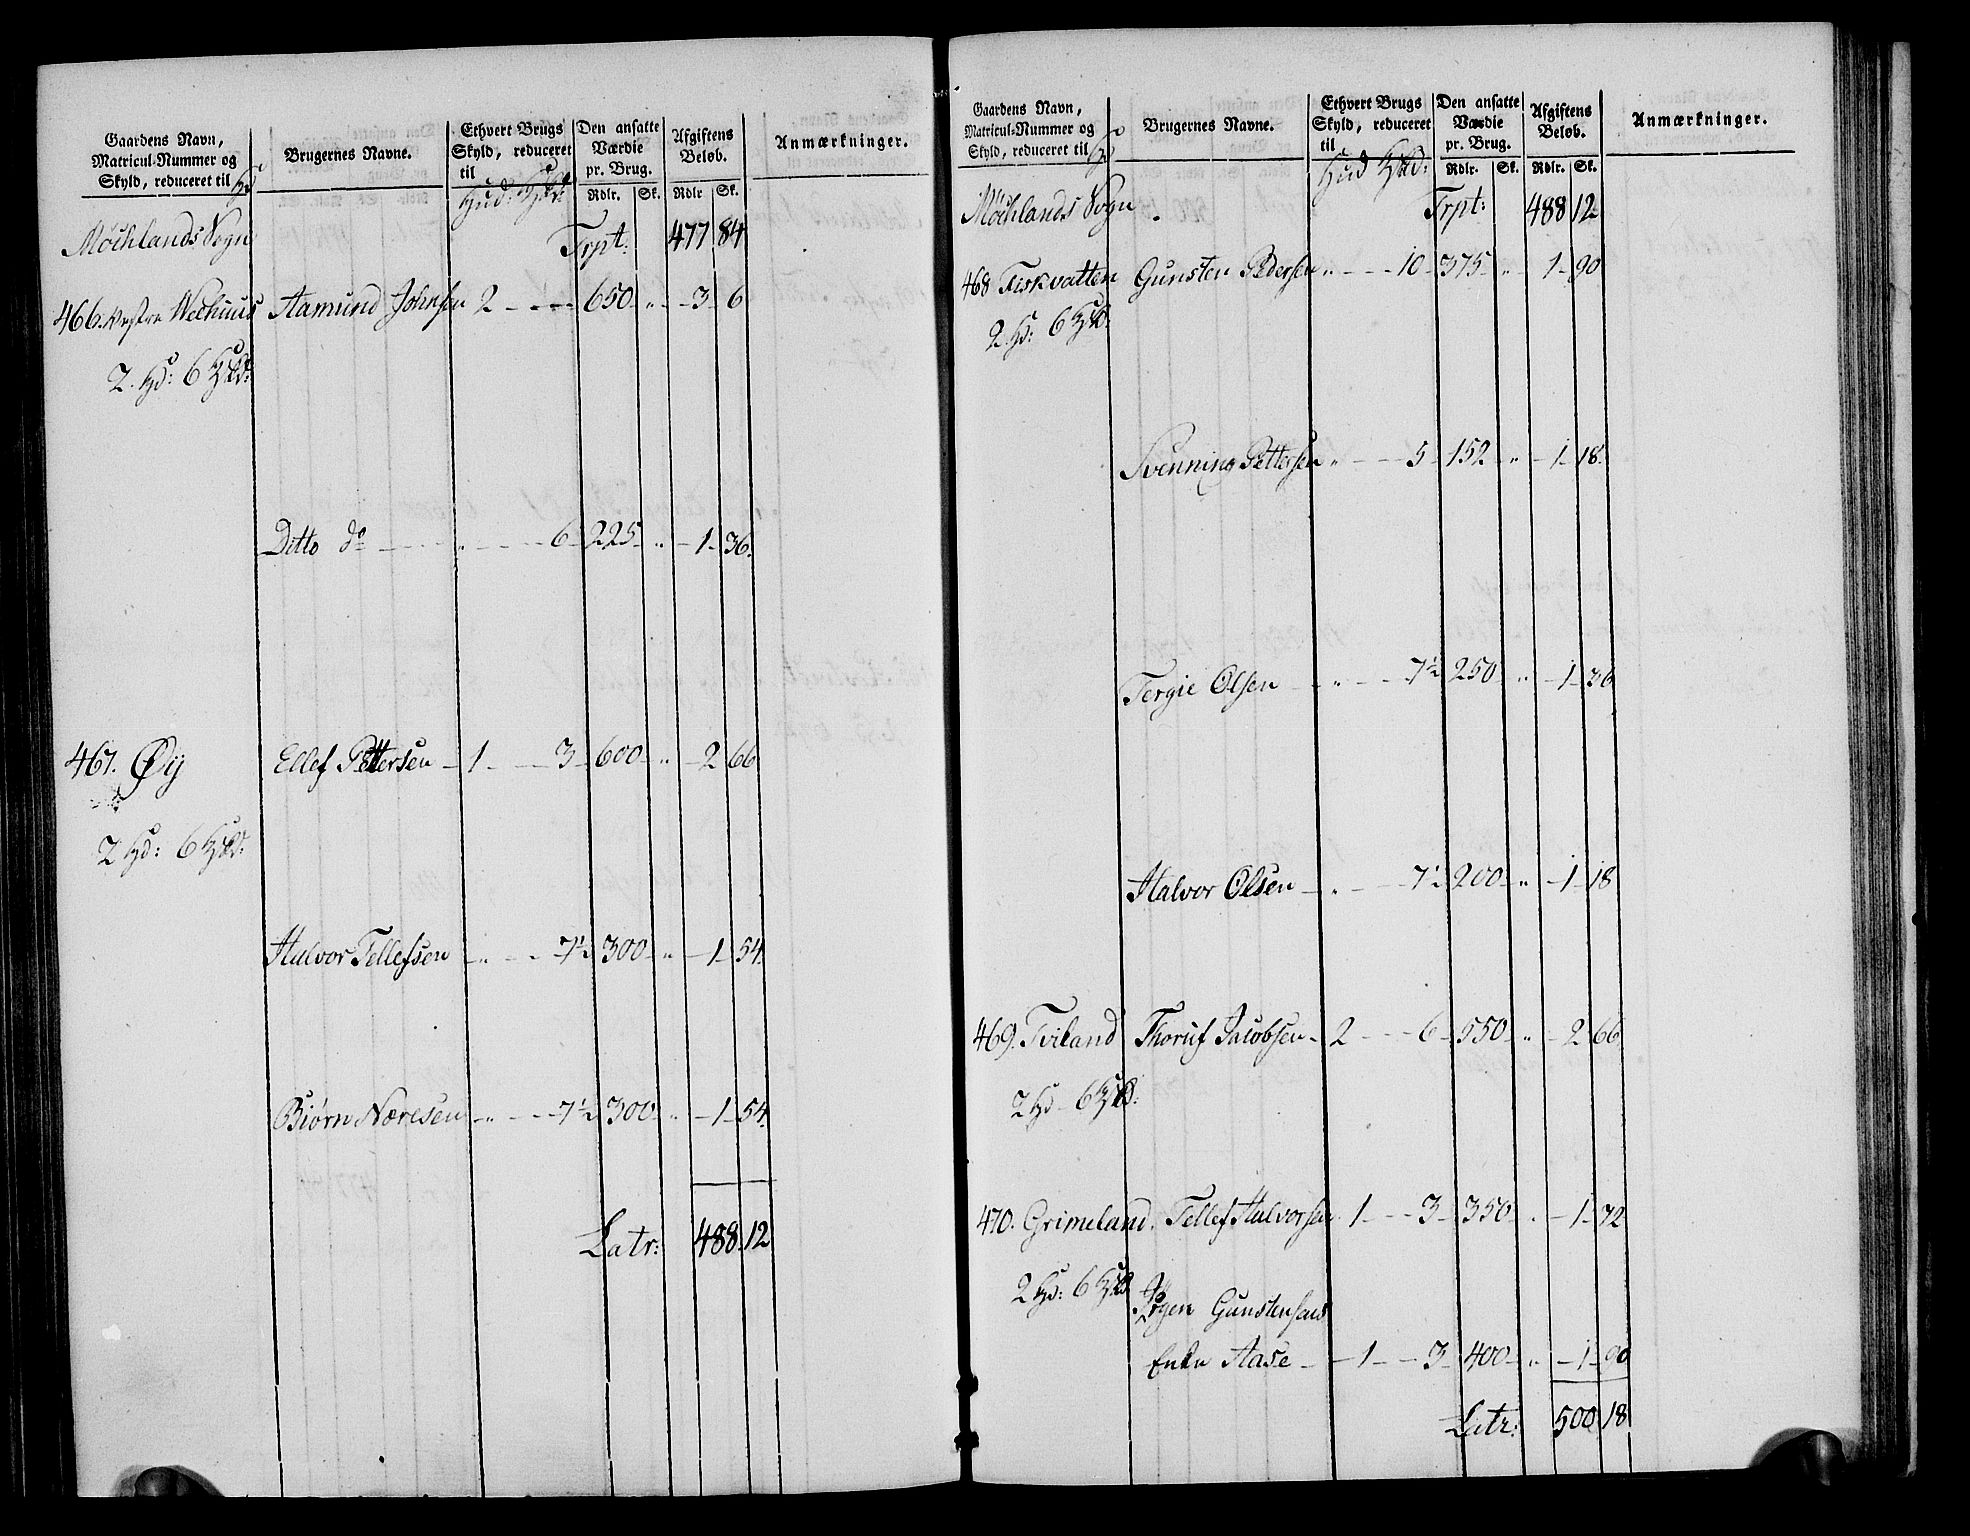 Gaardens Navn, Matricul-Nummer og Skyld, reduceret til Hd
Brugernes Navne.
Ethvert Brugs Skyld, reduceret til Hud: Skd:
Den ansatte Værdie pr. Brug. Rdlr. Sk.
Afgiftens Beløb. Rdlr Sk.
Anmærkninger.
Møchlands Sogn Trpt: 477 84
466. Vestre Wehuus Aamund Johnsen 2 - - - 650 - " - 3 - 6
2. Hd: 6 Skd:
Ditto do - - - " - - - 6 - 225 - " - 1 - 36.
467. Øÿ Ellef Pettersen - 1 - - 3 - 600 - " - 2 66
2 Hd: 6 Skd:
Halvor Tellefsen - " - - 7½ 300 - " - 1 - 54.
Biørn Næresen - " - - 7½ 300 - " - 1 - 54.
Latr: 488 12
Gaardens Navn, Matricul-Nummer og Skyld, reduceret til Hd
Brugernes Navne.
Ethvert Brugs Skyld, reduceret til Hud Skd:
Den ansatte Værdie pr. Brug. Rdlr. Sk.
Afgiftens Beløb. Rdlr. Sk.
Anmærkninger.
Møchlands Sogn Trpt: 488 12
468 Fiskvatten Gunsten Pedersen " - - - 10 - 375 - " - 1 - 90
2 Hd: 6 Skd:
Svenning Pettersen " - - - 5 - 152 - " - 1 - 18.
Tergie Olsen - " - - 7½ 250 - " - 1 - 36
Halvor Olsen - " - - 7½ 200 - " - 1 - 18
469. Tviland Thoruf Jacobsen - 2 - - 6 - 550 - " - 2 66
2 Hd - 6 Skd:
470. Grimeland. Tellef Halvorsen 1 - - 3 - 350 - " - 1 - 72
2 Hd: 6 Skd
Jørgen Gunstensens
Enke Aase - - 1 - - 3 - 400 - " - 1 - 90
Latr: 500 18